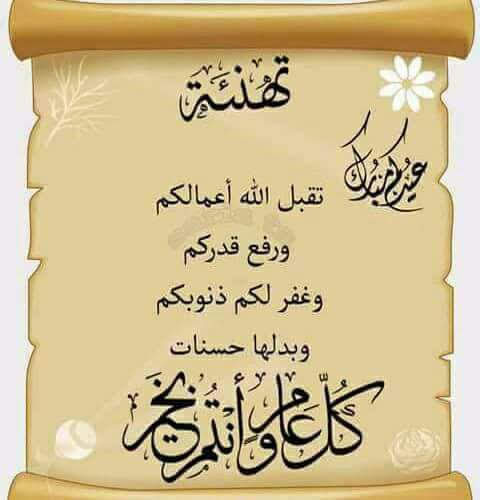 تهنئة
عيدكم مبارك
تقبل الله أعمالكم
ورفع قدركم
وغفر لكم ذنوبكم
وبدلها حسنات
كُلُّ عَامٍ وَأَنْتُمْ بِخَيْرٍ